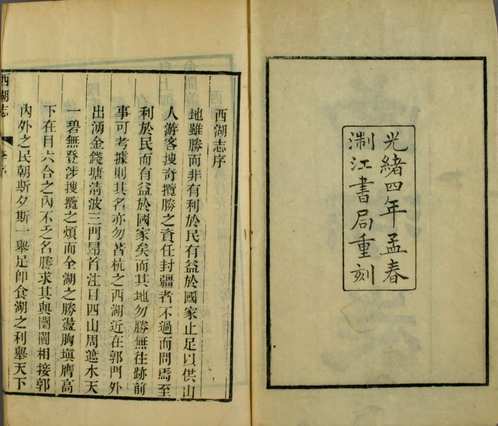 光緒四年孟春
淛江書局重刻
西湖志序
地雖勝而非有利於民有益於國家止足以供山
人游客搜奇攬勝之資任封疆者不過而問焉至
利於民而有益於國家矣而其地勿勝無往跡前
事可考據則其名亦勿著杭之西湖近在郭門外
出湧金錢塘清波三門昂首注目四山周遮水天
一碧無登涉搜攬之煩而全湖之勝盪胸塡膺高
下在目六合之內不乏名勝求其與闤闠相接郭
內外之民朝斯夕斯一舉足卽食湖之利舉天下
西湖志
序